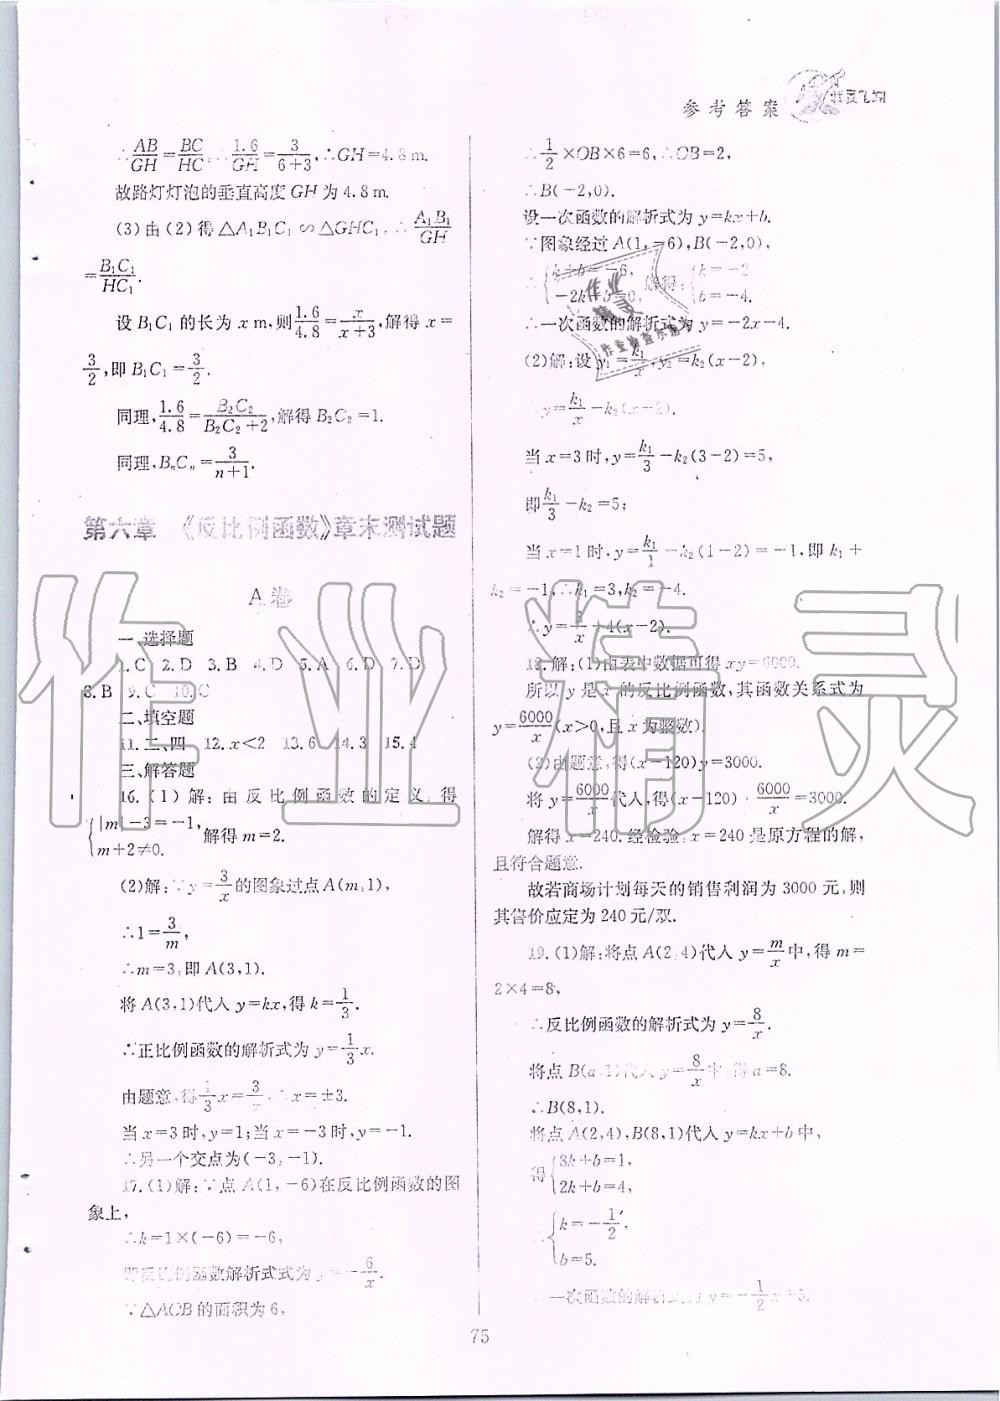 参考答案
∴AB/GH=BC/HC,∴1.6/GH=3/(6+3),∴GH=4.8 m.
故路灯灯泡的垂直高度GH为4.8 m.
(3)由(2)得△A₁B₁C₁∽△GHC₁,∴A₁B₁/GH
=B₁C₁/HC₁.
设B₁C₁的长为x m,则1.6/4.8=x/(x+3),解得x=
3/2,即B₁C₁=3/2.
同理,1.6/4.8=B₂C₂/(B₂C₂+2),解得B₂C₂=1.
同理,BₙCₙ=3/(n+1).
第六章 《反比例函数》章末测试题
A卷
一、选择题
1.C 2.D 3.B 4.D 5.A 6.D 7.D
8.B 9.C 10.C
二、填空题
11.二、四 12.x<2 13.6 14.3 15.4
三、解答题
16.(1)解:由反比例函数的定义,得
{|m|-3=-1,
m+2≠0. 解得m=2.
(2)解:∵y=3/x的图象过点A(m,1),
∴1=3/m,
∴m=3,即A(3,1).
将A(3,1)代入y=kx,得k=1/3.
∴正比例函数的解析式为y=1/3x.
由题意,得1/3x=3/x,∴x=±3.
当x=3时,y=1;当x=-3时,y=-1.
∴另一个交点为(-3,-1).
17.(1)解:∵点A(1,-6)在反比例函数的图
象上,
∴k=1×(-6)=-6,
即反比例函数解析式式为y=-6/x.
∵△AOB的面积为6,
∴1/2×OB×6=6,∴OB=2,
∴B(-2,0).
设一次函数的解析式为y=kx+b.
∵图象经过A(1,-6),B(-2,0),
∴{k+b=-6,
-2k+b=0, 解得{k=-2
b=-4.
∴一次函数的解析式为y=-2x-4.
(2)解:设y₁=k₁/x,y₂=k₂(x-2),
∴y=k₁/x-k₂(x-2).
当x=3时,y=k₁/3-k₂(3-2)=5,
即k₁/3-k₂=5;
当x=1时,y=k₁/1-k₂(1-2)=-1,即k₁+
k₂=-1,∴k₁=3,k₂=-4.
∴y=3/x+4(x-2).
18.解:(1)由表中数据可得xy=6000.
所以y是x的反比例函数,其函数关系式为
y=6000/x(x>0,且x为整数).
(2)由题意,得(x-120)y=3000.
将y=6000/x代入,得(x-120)·6000/x=3000.
解得x=240.经检验,x=240是原方程的解,
且符合题意.
故若商场计划每天的销售利润为3000元,则
其售价应定为240元/双.
19.(1)解:将点A(2,4)代入y=m/x中,得m=
2×4=8,
∴反比例函数的解析式为y=8/x.
将点B(a,1)代入y=8/x中,得a=8.
∴B(8,1).
将点A(2,4),B(8,1)代入y=kx+b中,
得{8k+b=1,
2k+b=4,
∴{k=-1/2,
b=5.
∴一次函数的解析式为y=-1/2x+5.
75
作业精灵